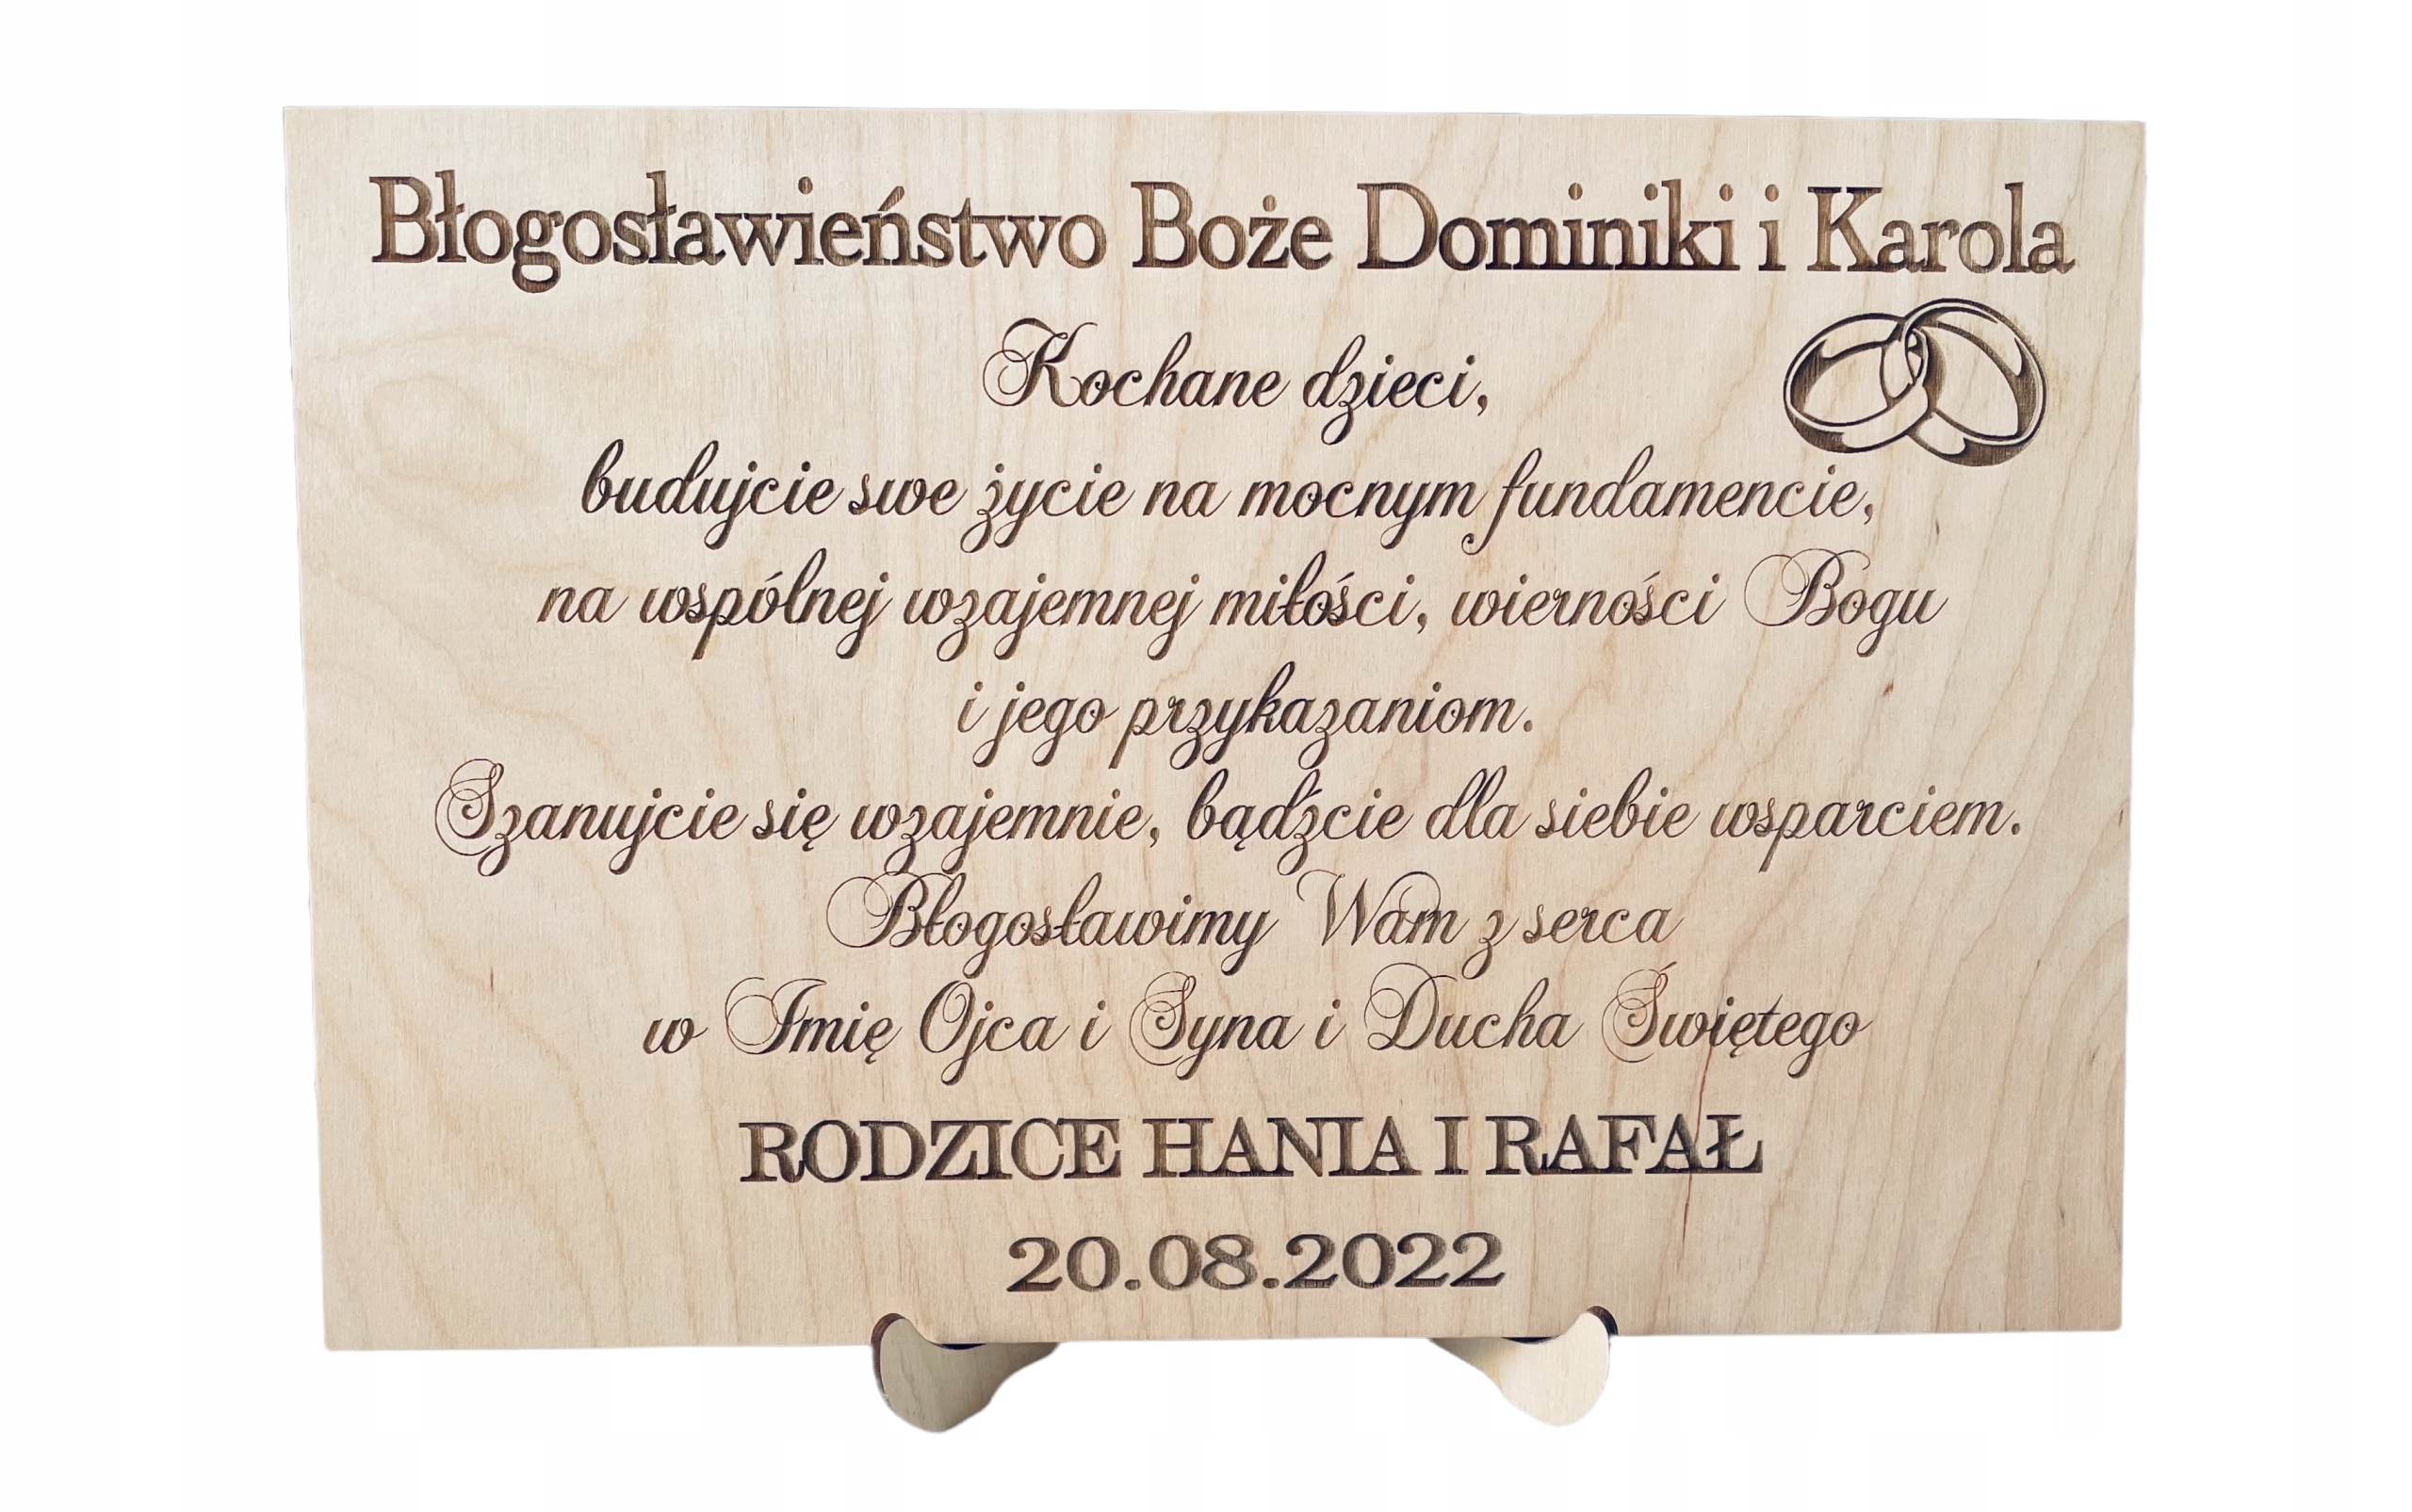 Błogosławieństwo Boże Dominiki i Karola
Kochane dzieci,
budujcie swe życie na mocnym fundamencie,
na wspólnej wzajemnej miłości, wierności Bogu
i jego przykazaniom.
Szanujcie się wzajemnie, bądźcie dla siebie wsparciem.
Błogosławimy Wam z serca
w Imię Ojca i Syna i Ducha Świętego
RODZICE HANIA I RAFAŁ
20.08.2022